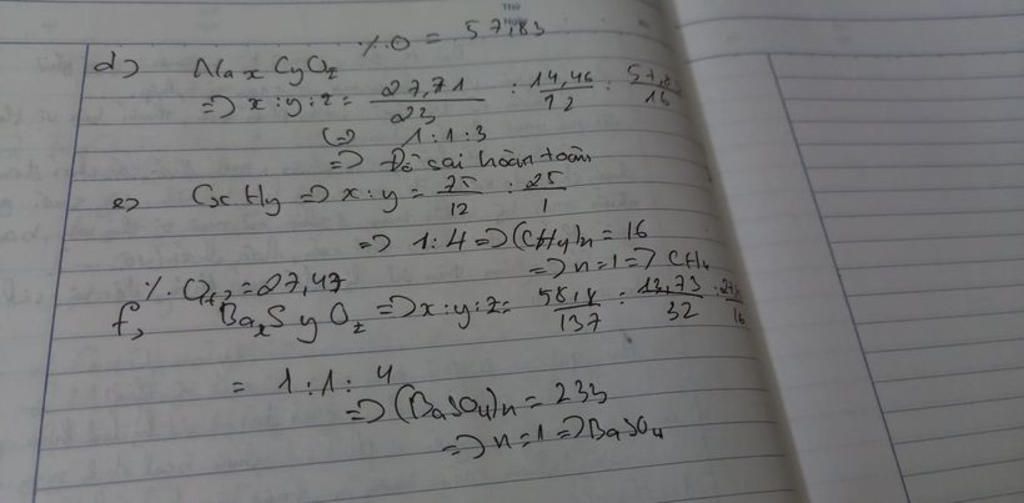 %O = 57,83
d) NaxCyOz
=> x : y : z = 27,71/23 : 14,46/12 : 57,8/16
<=> 1 : 1 : 3
=> Đề sai hoàn toàn
e) CxHy => x : y = 75/12 : 25/1
=> 1 : 4 => (CH4)n = 16
=> n = 1 => CH4
%. = 27,47
f, BaxSyOz => x : y : z = 58,8/137 : 13,73/32 : /16
= 1 : 1 : 4
=> (BaSO4)n = 233
=> n = 1 => BaSO4